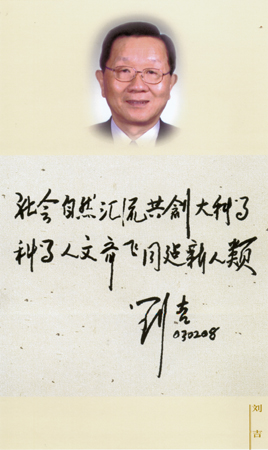 社会自然汇流共創大科学
科学人文齐飞同造新人類
劉吉
030208
刘吉